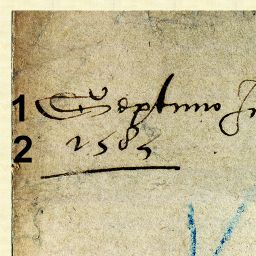 1 Septimo Ju
2 1583